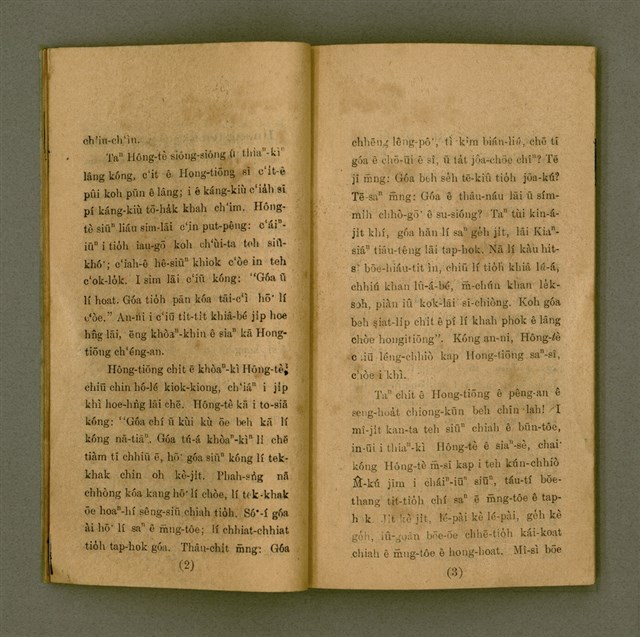 chʻin-chʻin.
Taⁿ Hông-tè siông-siông ū thiaⁿ-kìⁿ
lâng kóng, cʻit ê Hong-tiōng sī cʻit-ê
pûi koh pūn ê lâng; i ê káng-kiù cʻiâh sī
pí káng-kiù tō-hák khah chʻim. Hông-
tè siūⁿ liáu sim-lāi cʻin put-pêng: cʻáiⁿ-
iūⁿ i tióh iau-gō koh chʻùi-ta teh siū-
khó͘; cʻiah-ê hē-siūⁿ khiok cʻòe in teh
cʻok-lók. I sim lāi cʻiū kóng: "Góa ū
lí hoat. Góa tióh pān kóa tāi-cʻì hō͘ lí
cʻòe." An-ni i cʻiū tít-tít khiâ-bé jíp hoe
hn̂g lāi, ēng khòaⁿ-khin ê siaⁿ kā Hong-
tiōng chʻéng-an.
Hông-tiōng chít ê khòaⁿ-kì Hông-tè,
chiū chin hó-lé kiok-kiong, chʻiáⁿ i jíp
khì hoe-hn̂g lāi chē. Hông-tè kā i to-siā
kóng: "Góa chí ū kùi kù ōe beh kā lí
kóng nā-tiāⁿ. Góa tú-á khòaⁿ-kìⁿ lí chē
tiàm tī chhiū ē, hō͘ góa siūⁿ kóng lí tek-
khak chin oh kè-jít. Phah-sǹg nā
chhòng kóa kang hō͘ lí chòe, lí tek-khak
ōe hoaⁿ-hí sêng-siū chiah tióh. Só͘-í góa
ài hō͘ lí saⁿ ê m̄ng-tôe; lí chhiat-chhiat
tióh tap-hok góa. Thâu-chít m̄ng: Góa
(2)
chhēng lêng-pô͘, tì kim bián-liû, chē tī
góa ê chō-ūi ê sî, ū tát jōa-chōe chîⁿ? Tē
jī m̄ng: Góa beh séh tē-kiû tióh jōa-kú?
Tē-saⁿ m̄ng: Góa ê thâu-náu lāi ū sím-
míh chhò-gō͘ ê su-sióng? Taⁿ tùi kin-á-
jít khí, góa hān lí saⁿ géh jít, lâi Kiaⁿ-
siâⁿ tiâu-têng lāi tap-hok. Nā lí kàu hit-
sî bōe-hiáu-tit ìn, chiū lí tióh khiâ lû-á,
chhiú khan lû-á-bé, m̄-chún khan lók-
sòh, piàn iû kok-lāi sì-chiòng. Koh góa
beh siat-líp chít ê pí lí khah phok ê lâng
chòe hongtiōng". Kóng an-ni, Hông-tè
chiū léng-chhiò kap Hong-tiōng saⁿ-sî,
chòe i khì.
Taⁿ chit ê Hong-tiōng ê pêng-an ê
seng-hoát chiong-kūn beh chīn lah! I
mî-jít kan-ta teh siūⁿ chiah ê būn-tôe,
in-ūi i thiaⁿ-kì Hông-tè ê siaⁿ-sè, chai
kóng Hông-tè m̄-sī kap i teh kún-chhiò
M̄-kú jīm i cháiⁿ-iūⁿ siūⁿ, táu-tí bōe-
thang tít-tióh chí saⁿ ê m̄ng-tôe ê tap-
hok. Jít kè jít, lé-pài kè lé-pài, géh kè
géh, iû-goân bōe-ōe chhē-tióh kái-koat
chiah ê m̄ng-tôe ê hong-hoat. Mî-sì bōe
(3)